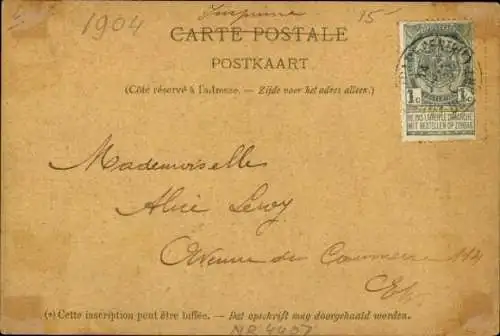 1904
Imprimé
15
CARTE POSTALE
POSTKAART
(Côté réservé à l'adresse. — Zijde voor het adres alleen.)
1c 1c
NE PAS LIVRER LE DIMANCHE
NIET BESTELLEN OP ZONDAG
Mademoiselle
Alice Levy
Avenue du Commerce 114
(*) Cette inscription peut être biffée. — Dat opschrift mag doorgehaald worden.
NR 4407